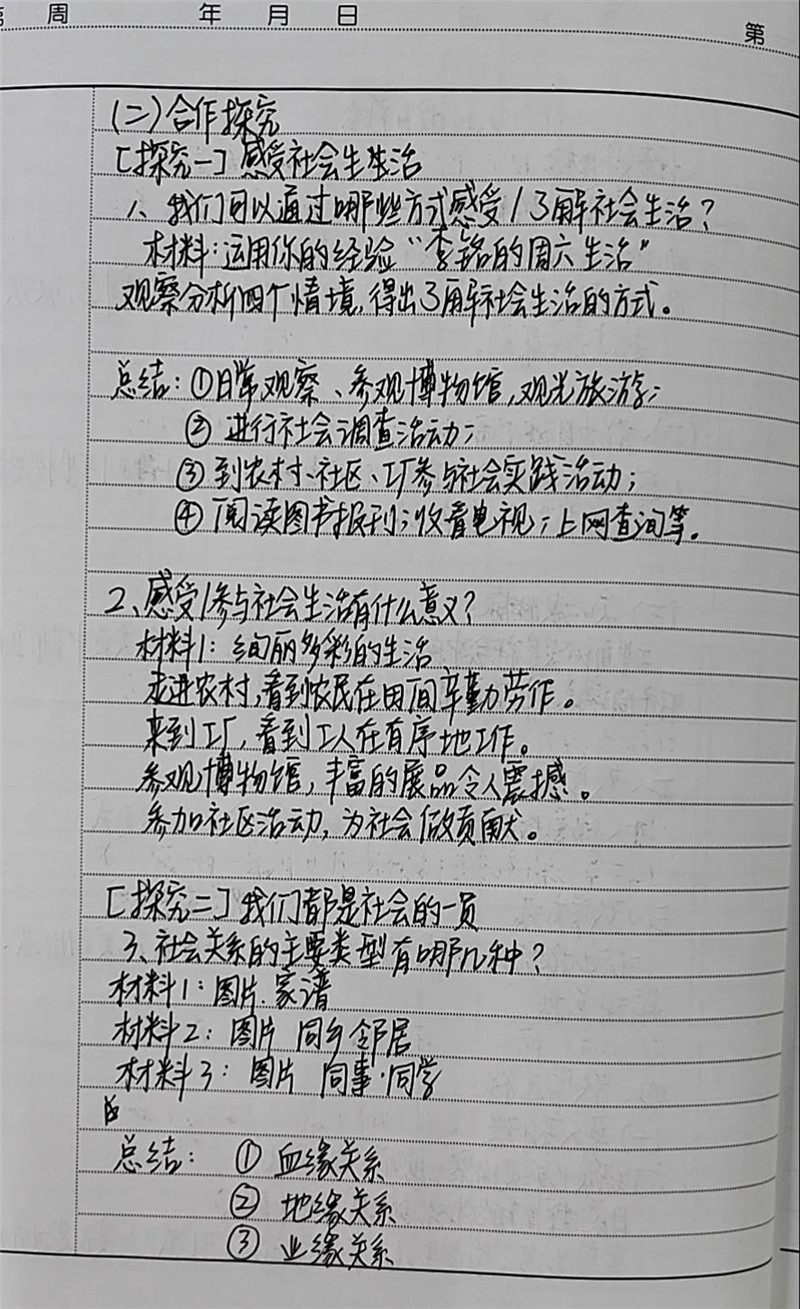 第 周 年 月 日
第
(二)合作探究
[探究一]感受社会生生活
1、我们可以通过哪些方式感受/了解社会生活?
材料:运用你的经验“李铭的周六生活”
观察分析四个情境,得出了解社会生活的方式。
总结:①日常观察、参观博物馆,观光旅游;
② 进行社会调查活动;
③ 到农村、社区、工厂参与社会实践活动;
④ 阅读图书报刊;收看电视;上网查询等。
2、感受/参与社会生活有什么意义?
材料1:绚丽多彩的生活
走进农村,看到农民在田间辛勤劳作。
来到工厂,看到工人在有序地工作。
参观博物馆,丰富的展品令人震撼。
参加社区活动,为社会做贡献。
[探究二]我们都是社会的一员
3、社会关系的主要类型有哪几种?
材料1:图片 家谱
材料2:图片 同乡邻居
材料3:图片 同事·同学
总结: ① 血缘关系
② 地缘关系
③ 业缘关系